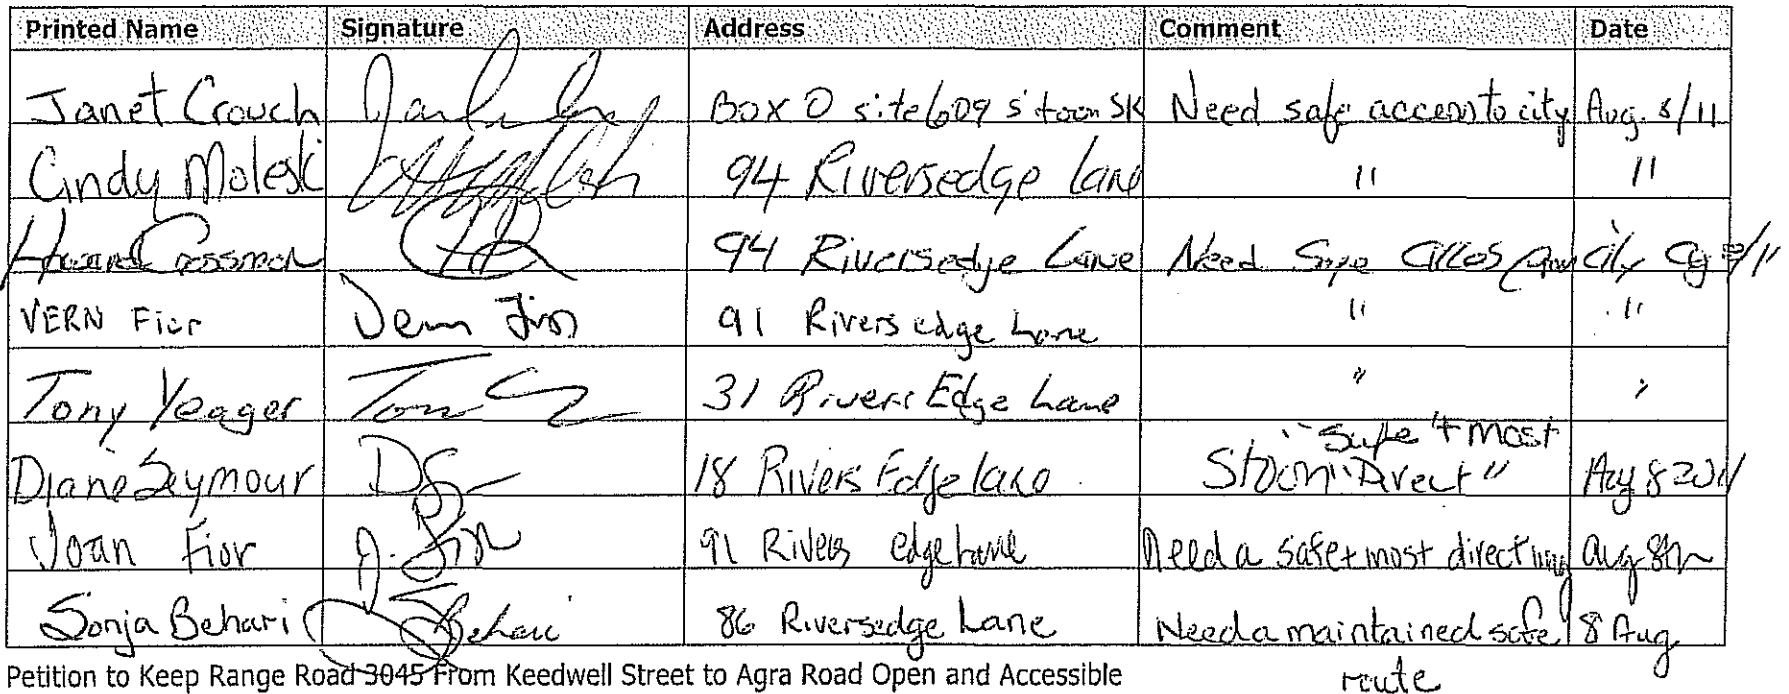 Printed Name Signature Address Comment Date
Janet Crouch Box 0 site 609 s'toon SK Need safe access to city Aug. 8/11
Cindy Moleski 94 Riversedge Lane " "
Howard Crossman 94 Riversedge Lane Need Safe city
VERN Fior Vern Fior 91 Riversedge Lane " "
Tony Yeager Tony 31 Rivers Edge Lane " "
"Safe + most
Diane Seymour DS 18 Rivers Edge lane S'toon "Direct" Aug 8 2011
Joan Fior J. Fior 91 Rivers edge Lane Need a safe + most direct Aug 8th
Sonja Behari S Behari 86 Riversedge Lane Need a maintained safe 8 Aug
route
Petition to Keep Range Road 3045 From Keedwell Street to Agra Road Open and Accessible